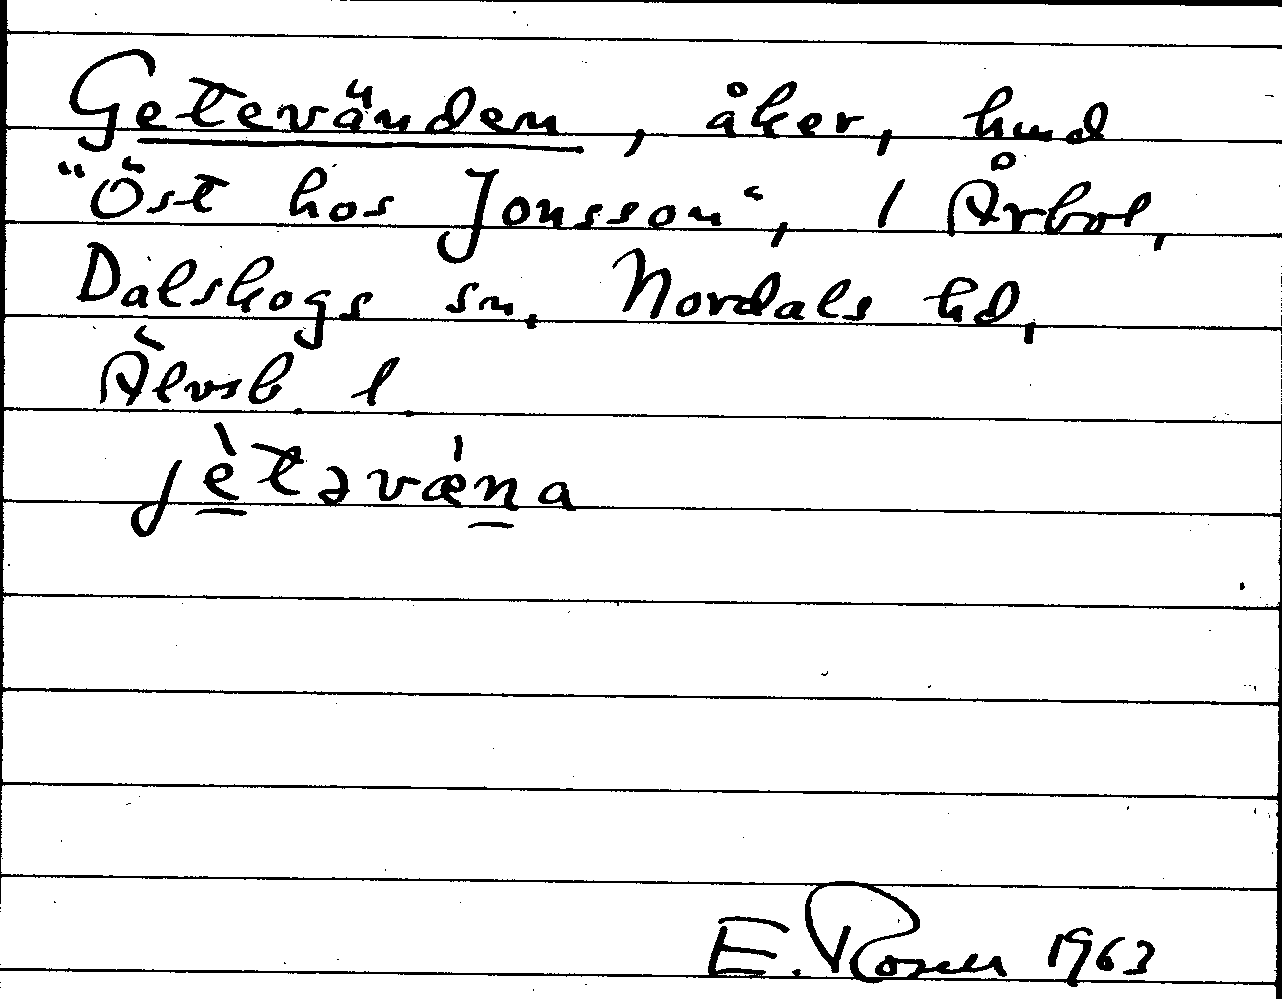 Getevänden, åker, hmd
"Öst hos Jonsson", / Årbol,
Dalskogs sn. Nordals hd,
Älvsb. l.
jètəvǽna
E. Rosen 1963